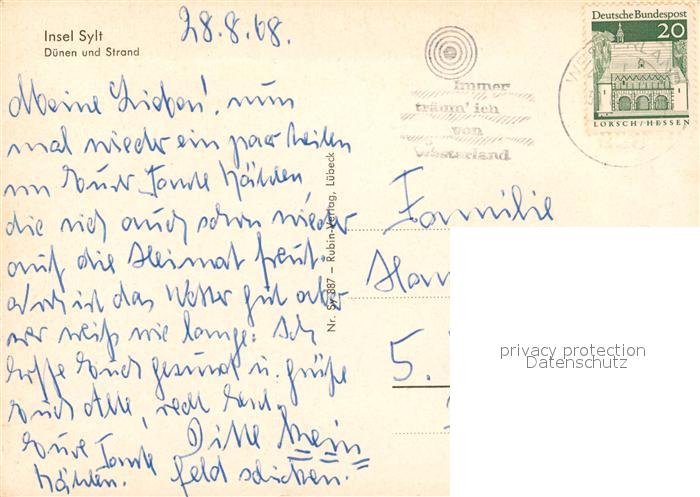 Insel Sylt
Dünen und Strand
28.8.68.
Meine Lieben! nun
mal wieder ein paar Zeilen
von Eurer Tante Käthen,
die sich auch schon wieder
auf die Heimat freut.
ist das Wetter gut aber
wer weiß wie lange. Ich
hoffe Euch gesund u. grüße
Euch Alle, recht herzl.
Eure Tante
Käthen.
Bitte kein
Geld schicken.
Nr. Sy 387 – Rubin-Verlag, Lübeck
Immer
träum' ich
von
Westerland
WESTERLAND
Deutsche Bundespost
20
LORSCH/HESSEN
Familie
5.
privacy protection
Datenschutz